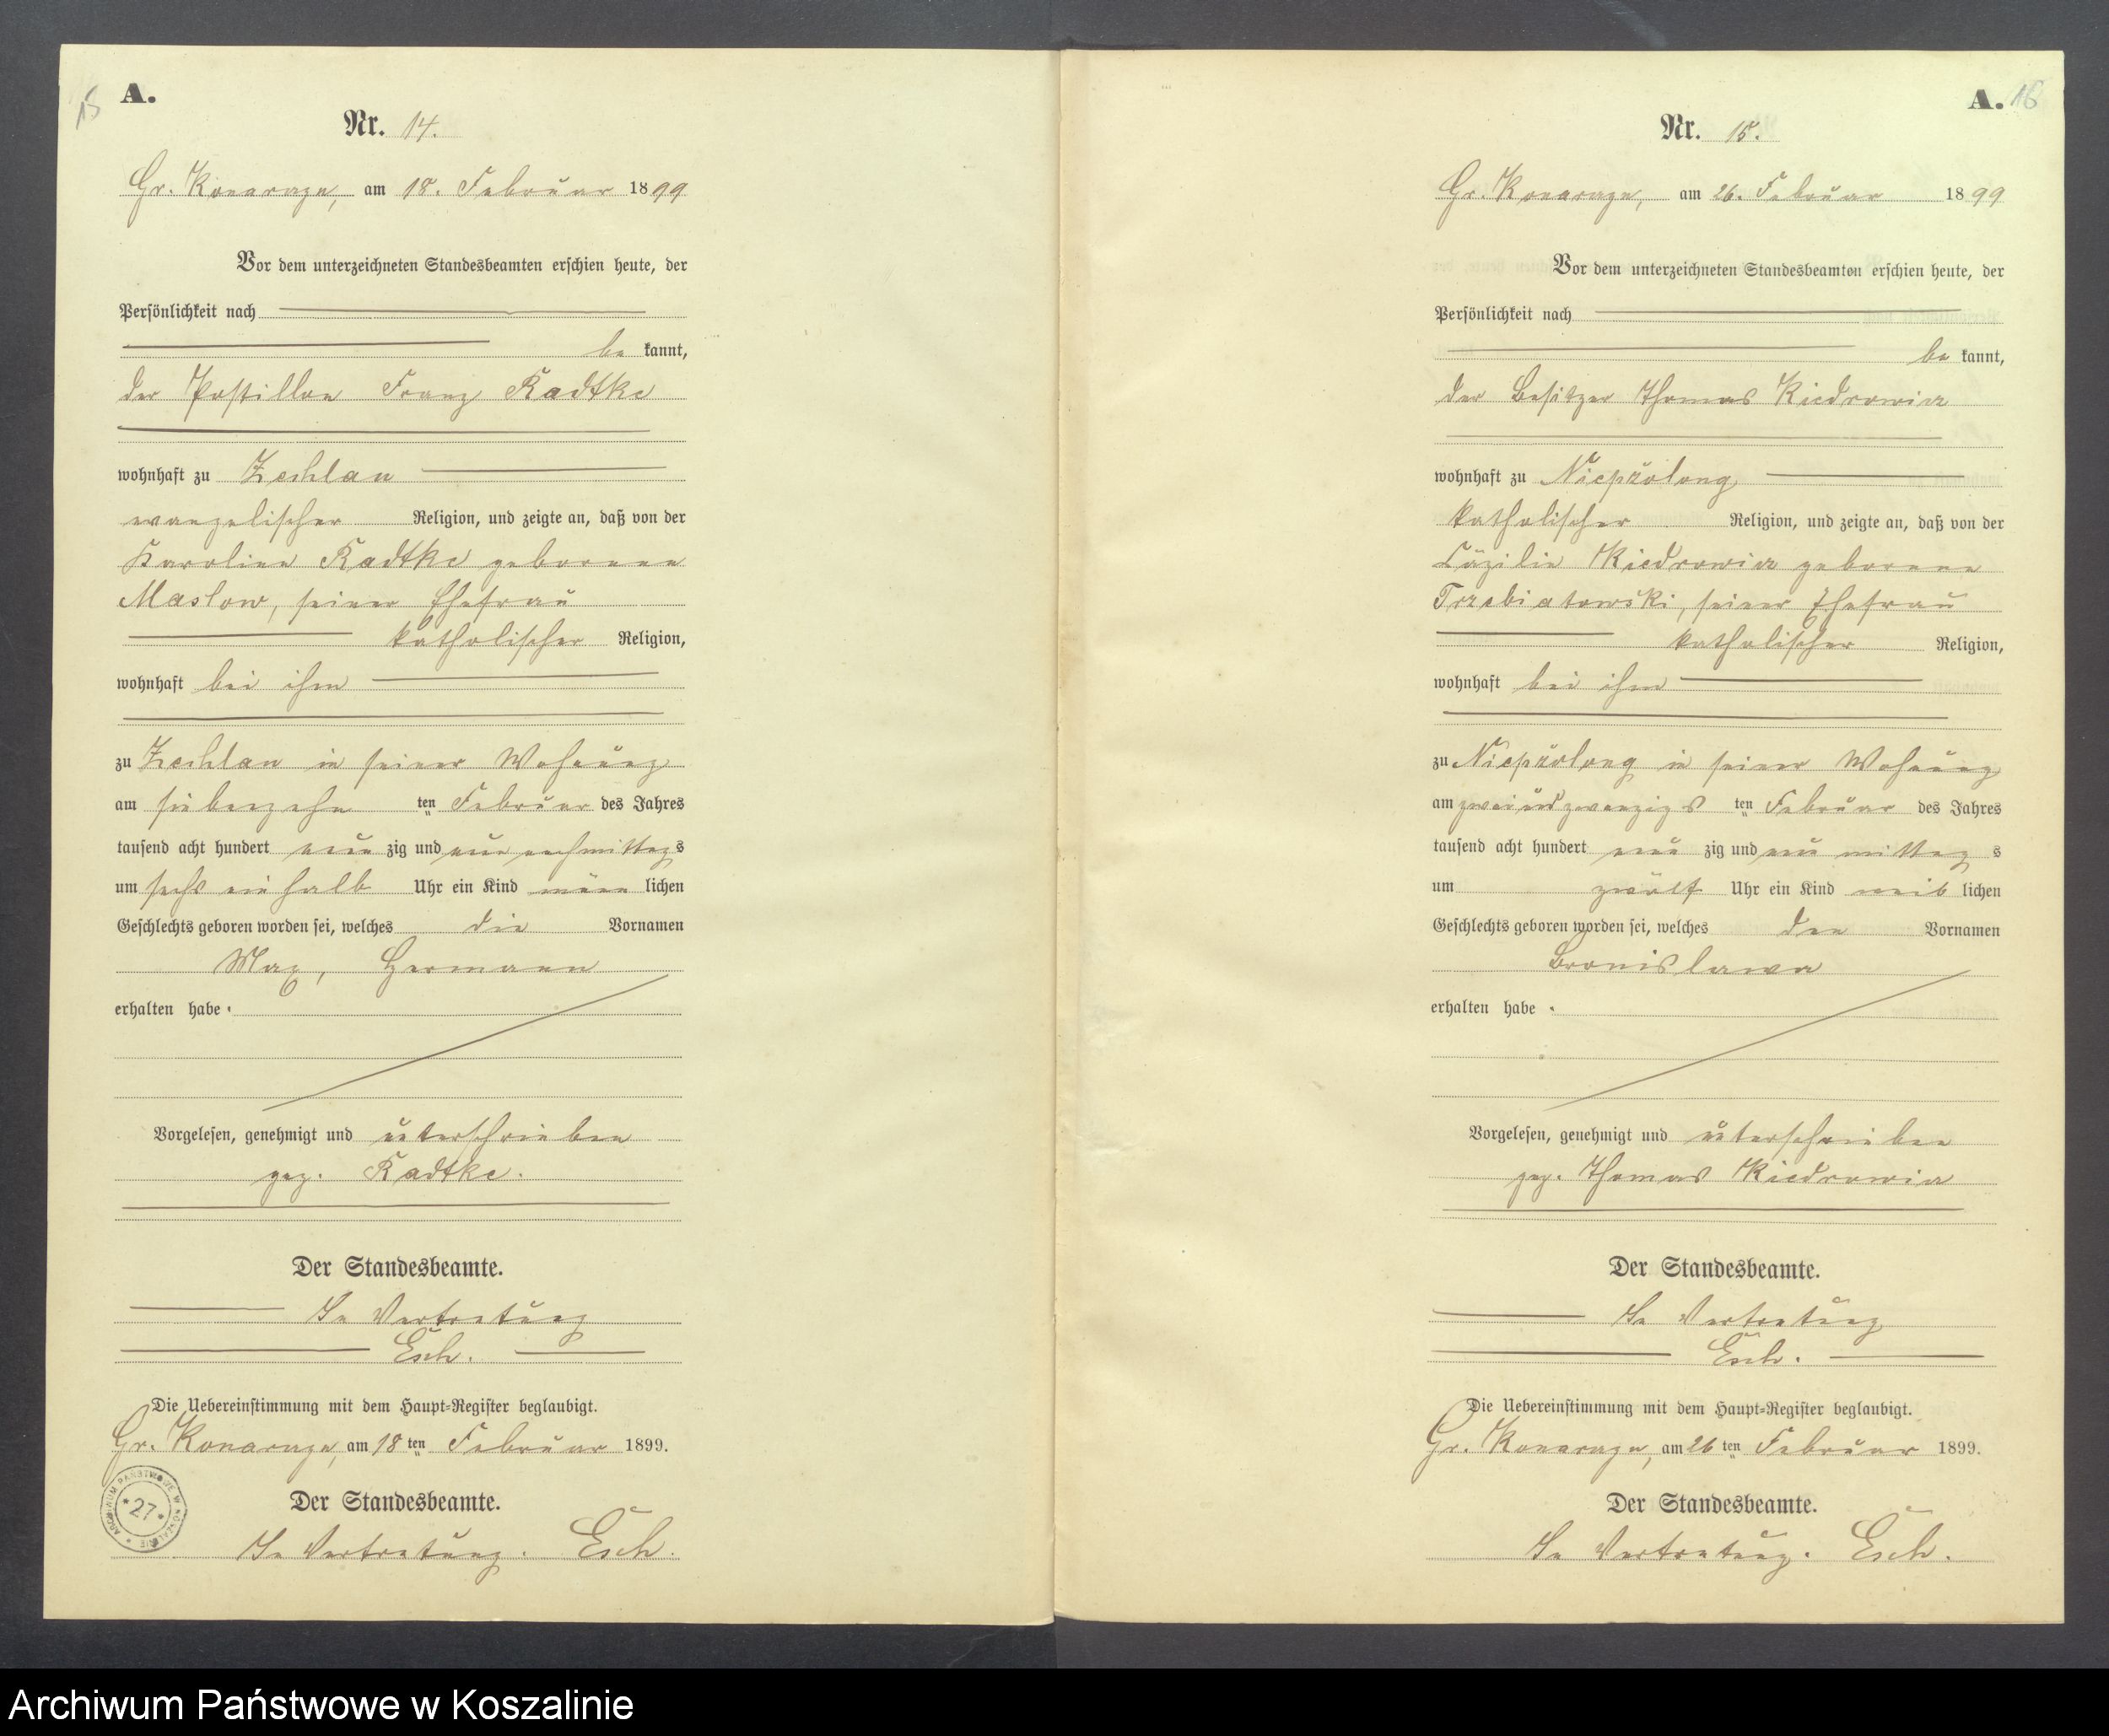 15
A.
Nr. 14.
Gr. Konarzyn, am 18. Februar 1899
Vor dem unterzeichneten Standesbeamten erschien heute, der
Persönlichkeit nach
be kannt,
der Postillon Franz Radtke
wohnhaft zu Zechlau
evangelischer Religion, und zeigte an, daß von der
Karoline Radtke geborenen
Maslow, seiner Ehefrau
katholischer Religion,
wohnhaft bei ihm
zu Zechlau in seiner Wohnung
am siebenzehn ten Februar des Jahres
tausend acht hundert neun zig und neun nachmittag s
um sechs ein halb Uhr ein Kind männ lichen
Geschlechts geboren worden sei, welches die Vornamen
Max, Hermann
erhalten habe.
Vorgelesen, genehmigt und unterschrieben
gez. Radtke.
Der Standesbeamte.
In Vertretung
Esch.
Die Uebereinstimmung mit dem Haupt-Register beglaubigt.
Gr. Konarzyn, am 18 ten Februar 1899.
Der Standesbeamte.
In Vertretung. Esch.
ARCHIWUM PAŃSTWOWE W KOSZALINIE
*27*
A. 16
Nr. 15.
Gr. Konarzyn, am 26. Februar 1899
Vor dem unterzeichneten Standesbeamten erschien heute, der
Persönlichkeit nach
be kannt,
der Besitzer Thomas Kiedrowicz
wohnhaft zu Niepszolong
katholischer Religion, und zeigte an, daß von der
Cäzilie Kiedrowicz geborenen
Trzebiatowski, seiner Ehefrau
katholischer Religion,
wohnhaft bei ihm
zu in seiner Wohnung
am zweiundzwanzigs ten Februar des Jahres
tausend acht hundert neun zig und neun mittag s
um zwölf Uhr ein Kind weib lichen
Geschlechts geboren worden sei, welches den Vornamen
Bronislawa
erhalten habe.
Vorgelesen, genehmigt und unterschrieben
gez. Thomas Kiedrowicz
Der Standesbeamte.
In Vertretung
Esch.
Die Uebereinstimmung mit dem Haupt-Register beglaubigt.
Gr. Konarzyn, am 26 ten Februar 1899.
Der Standesbeamte.
In Vertretung. Esch.
Archiwum Państwowe w Koszalinie